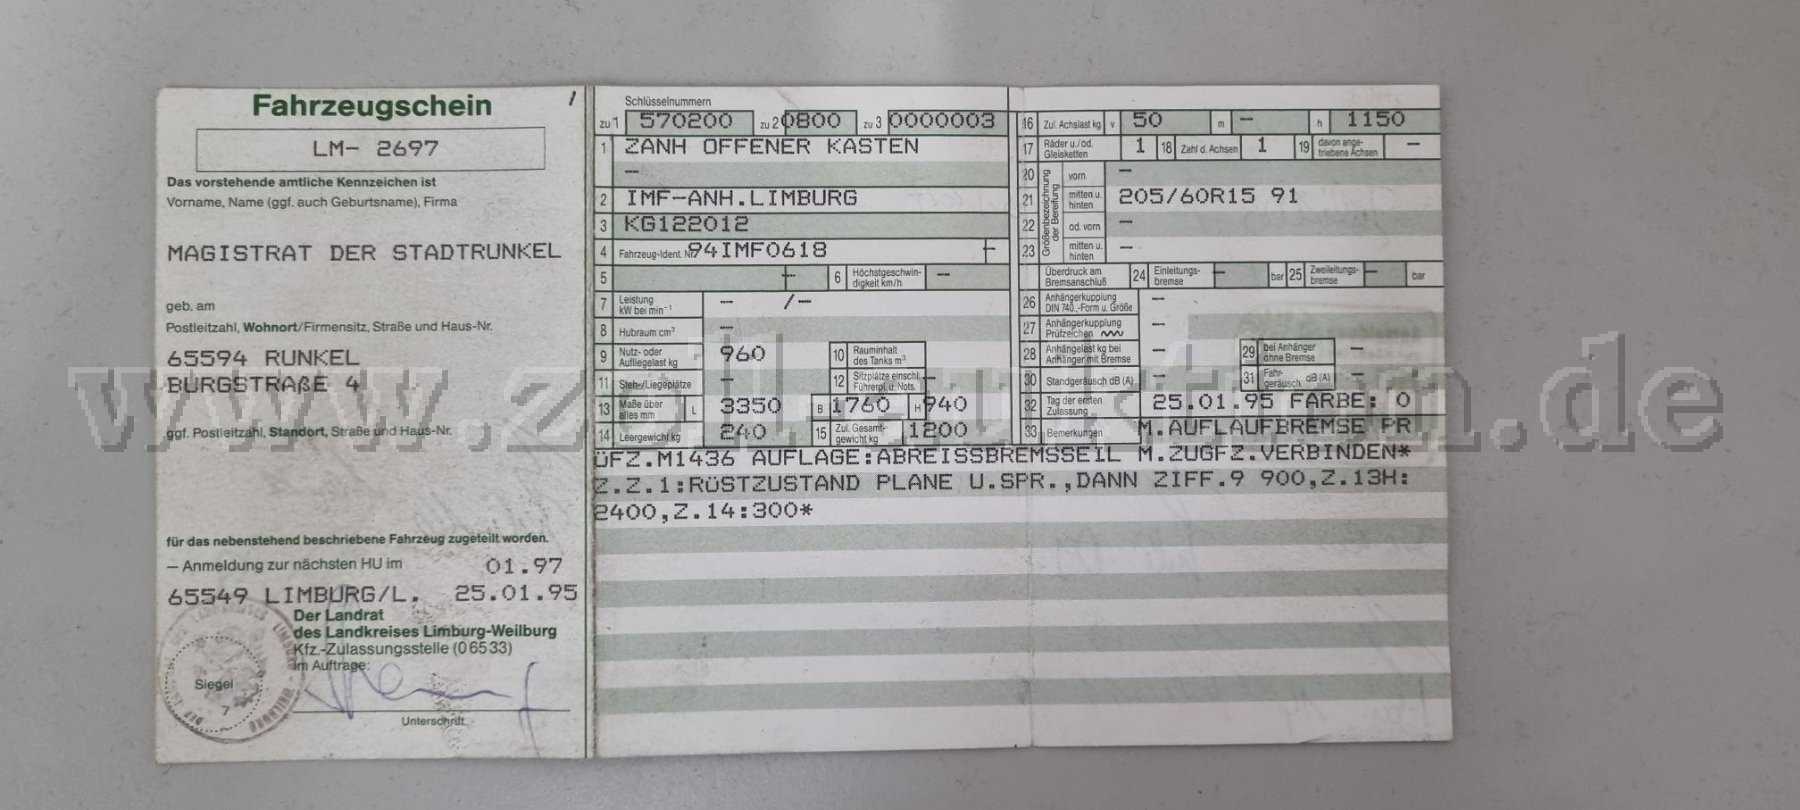 Fahrzeugschein
LM- 2697
Das vorstehende amtliche Kennzeichen ist
Vorname, Name (ggf. auch Geburtsname), Firma
MAGISTRAT DER STADTRUNKEL
geb. am
Postleitzahl, Wohnort/Firmensitz, Straße und Haus-Nr.
65594 RUNKEL
BURGSTRAßE 4
ggf. Postleitzahl, Standort, Straße und Haus-Nr.
für das nebenstehend beschriebene Fahrzeug zugeteilt worden.
— Anmeldung zur nächsten HU im 01.97
65549 LIMBURG/L. 25.01.95
Der Landrat
des Landkreises Limburg-Weilburg
Kfz.-Zulassungsstelle (06533)
Im Auftrage:
Siegel
7
Unterschrift
Schlüsselnummern
zu 1 570200 zu 2 0800 zu 3 0000003
1 ZANH OFFENER KASTEN
—
2 IMF-ANH.LIMBURG
3 KG122012
4 Fahrzeug-Ident. Nr. 94IMF0618
5 6 Höchstgeschwin-digkeit km/h —
7 Leistung kW bei min⁻¹ — /—
8 Hubraum cm³ —
9 Nutz- oder Aufliegelast kg 960 10 Rauminhalt des Tanks m³
11 Steh-/Liegeplätze — 12 Sitzplätze einschl. Führerpl. u. Nots. —
13 Maße über alles mm L 3350 B 1760 H 940
14 Leergewicht kg 240 15 Zul. Gesamt-gewicht kg 1200
16 Zul. Achslast kg v 50 m — h 1150
17 Räder u./od. Gleisketten 1 18 Zahl d. Achsen 1 19 davon ange-triebene Achsen —
Größenbezeichnung der Bereifung
20 vorn —
21 mitten u. hinten 205/60R15 91
22 od. vorn —
23 mitten u. hinten —
Überdruck am Bremsanschluß 24 Einleitungs-bremse — bar 25 Zweileitungs-bremse — bar
26 Anhängerkupplung DIN 740.-Form u. Größe —
27 Anhängerkupplung Prüfzeichen —
28 Anhängelast kg bei Anhänger mit Bremse — 29 bei Anhänger ohne Bremse —
30 Standgeräusch dB (A) — 31 Fahr-geräusch dB (A) —
32 Tag der ersten Zulassung 25.01.95 FARBE: 0
33 Bemerkungen M.AUFLAUFBREMSE PR
ÜFZ.M1436 AUFLAGE:ABREISSBREMSSEIL M.ZUGFZ.VERBINDEN*
Z.Z.1:RÜSTZUSTAND PLANE U.SPR.,DANN ZIFF.9 900,Z.13H:
2400,Z.14:300*
www.zoll-auktion.de